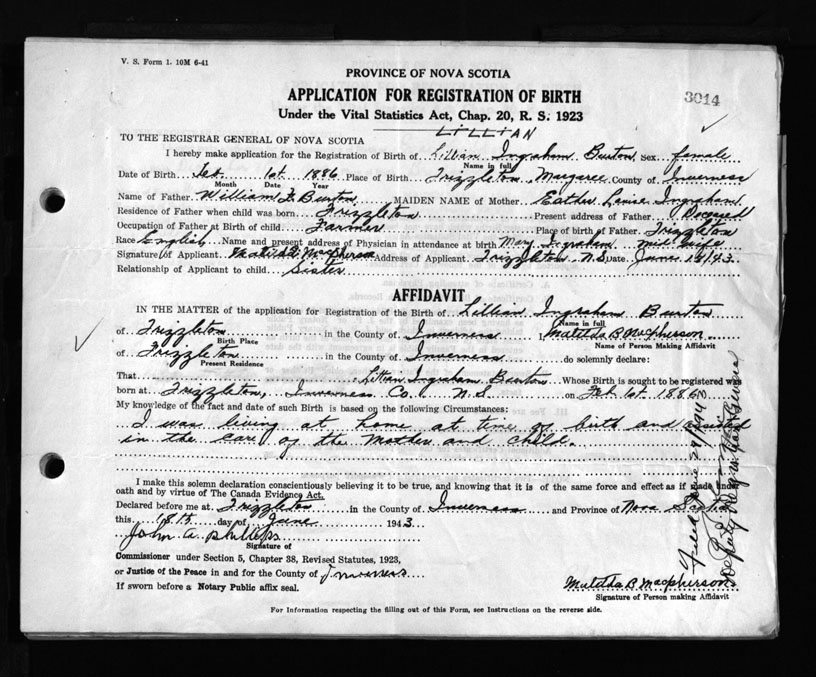 V. S. Form 1. 10M 6-41
PROVINCE OF NOVA SCOTIA
APPLICATION FOR REGISTRATION OF BIRTH
3014
Under the Vital Statistics Act, Chap. 20, R. S. 1923
LILLIAN
TO THE REGISTRAR GENERAL OF NOVA SCOTIA
I hereby make application for the Registration of Birth of Lillian Ingraham Burton Sex female
Name in full
Date of Birth Feb. 1st 1886 Place of Birth Frizzleton, Margaree County of Inverness
Month Date Year
Name of Father William F. Burton MAIDEN NAME of Mother Esther Louise Ingraham
Residence of Father when child was born Frizzleton Present address of Father Deceased
Occupation of Father at Birth of child Farmer Place of birth of Father Frizzleton
Race English Name and present address of Physician in attendance at birth Mary Ingraham mid wife
Signature of Applicant Matilda B MacPherson Address of Applicant Frizzleton N.S. Date June 18/43
Relationship of Applicant to child Sister
AFFIDAVIT
IN THE MATTER of the application for Registration of the Birth of Lillian Ingraham Burton
Name in full
of Frizzleton in the County of Inverness Matilda B MacPherson
Birth Place Name of Person Making Affidavit
of Frizzleton in the County of Inverness do solemnly declare:
Present Residence
That Lillian Ingraham Burton Whose Birth is sought to be registered was
born at Frizzleton, Inverness Co. N.S. on Feb 1st 1886
My knowledge of the fact and date of such Birth is based on the following Circumstances:
I was living at home at time of birth and assisted
in the care of the Mother and child.
I make this solemn declaration conscientiously believing it to be true, and knowing that it is of the same force and effect as if made under
oath and by virtue of The Canada Evidence Act.
Declared before me at Frizzleton in the County of Inverness and Province of Nova Scotia
this 18th day of June 1943
John A Phillips
Signature of
Commissioner under Section 5, Chapter 38, Revised Statutes, 1923,
or Justice of the Peace in and for the County of Inverness
If sworn before a Notary Public affix seal.
Matilda B. MacPherson
Signature of Person making Affidavit
For Information respecting the filling out of this Form, see Instructions on the reverse side.
Filed June 29/1944
Deputy Registrar General